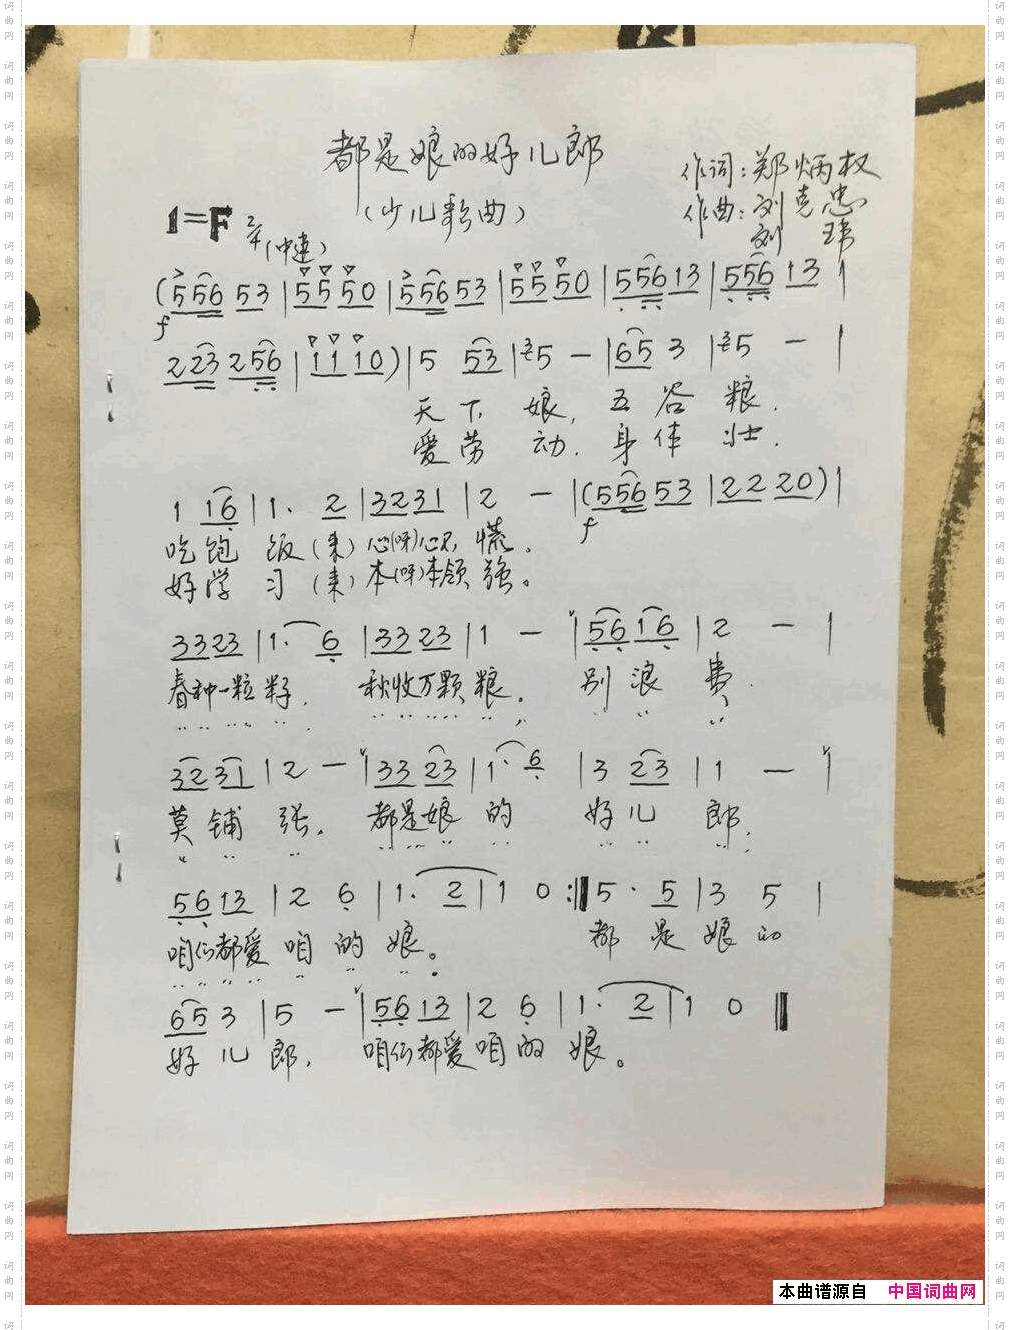 都是娘的好儿郎
(少儿歌曲)
作词:郑炳权
作曲:刘克忠
刘 玮
1=F 2/4 (中速)
(5 56 53 | 55 50 | 5 56 53 | 55 50 | 5 56 13 | 5 56 13 |
f
2 23 2 56 | 11 10) | 5 53 | 5 - | 65 3 | 5 - |
天下娘,五谷粮.
爱劳动.身体壮.
1 16 | 1. 2 | 32 31 | 2 - | (5 56 53 | 22 20) |
f
吃饱饭(来)心(呀)心不慌.
好学习(来)本(呀)本领强。
33 23 | 1. 6 | 33 23 | 1 - | 56 16 | 2 - |
春种一粒籽. 秋收万颗粮. 别浪费.
32 31 | 2 - | 33 23 | 1. 6 | 3 23 | 1 - |
莫铺张. 都是娘的好儿郎.
56 13 | 2 6 | 1. 2 | 1 0 :‖ 5. 5 | 3 5 |
咱们都爱咱的娘。 都是娘的
65 3 | 5 - | 56 13 | 2 6 | 1. 2 | 1 0 ‖
好儿郎, 咱们都爱咱的娘。
本曲谱源自 中国词曲网